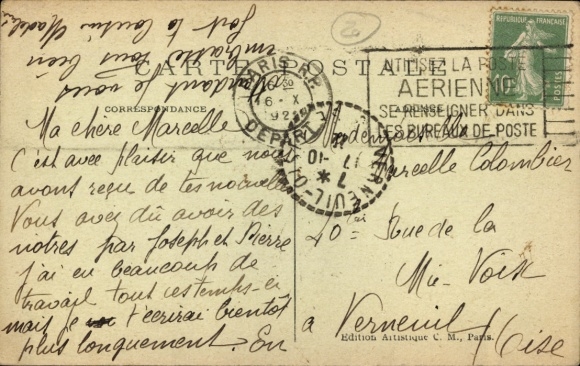 CARTE POSTALE
CORRESPONDANCE
Ma chère Marcelle
C'est avec plaisir que nous
avons reçu de tes nouvelles
Vous avez dû avoir des
nôtres par Joseph et Pierre
j'ai eu beaucoup de
travail tout ces temps-ci
mais je t'écrirai bientôt
plus longuement. En
attendant je vous
embrasse tous bien
fort ta cousine Madeleine
2
PARIS R.P.
DEPART
6 - X
UTILISEZ LA POSTE
AERIENNE
SE RENSEIGNER DANS
LES BUREAUX DE POSTE
REPUBLIQUE FRANÇAISE
10
VERNEUIL
7 - 10
ADRESSE
Mademoiselle
Marcelle Colombier
Rue de la
Mie-Voix
à Verneuil Oise
Edition Artistique C. M., Paris.